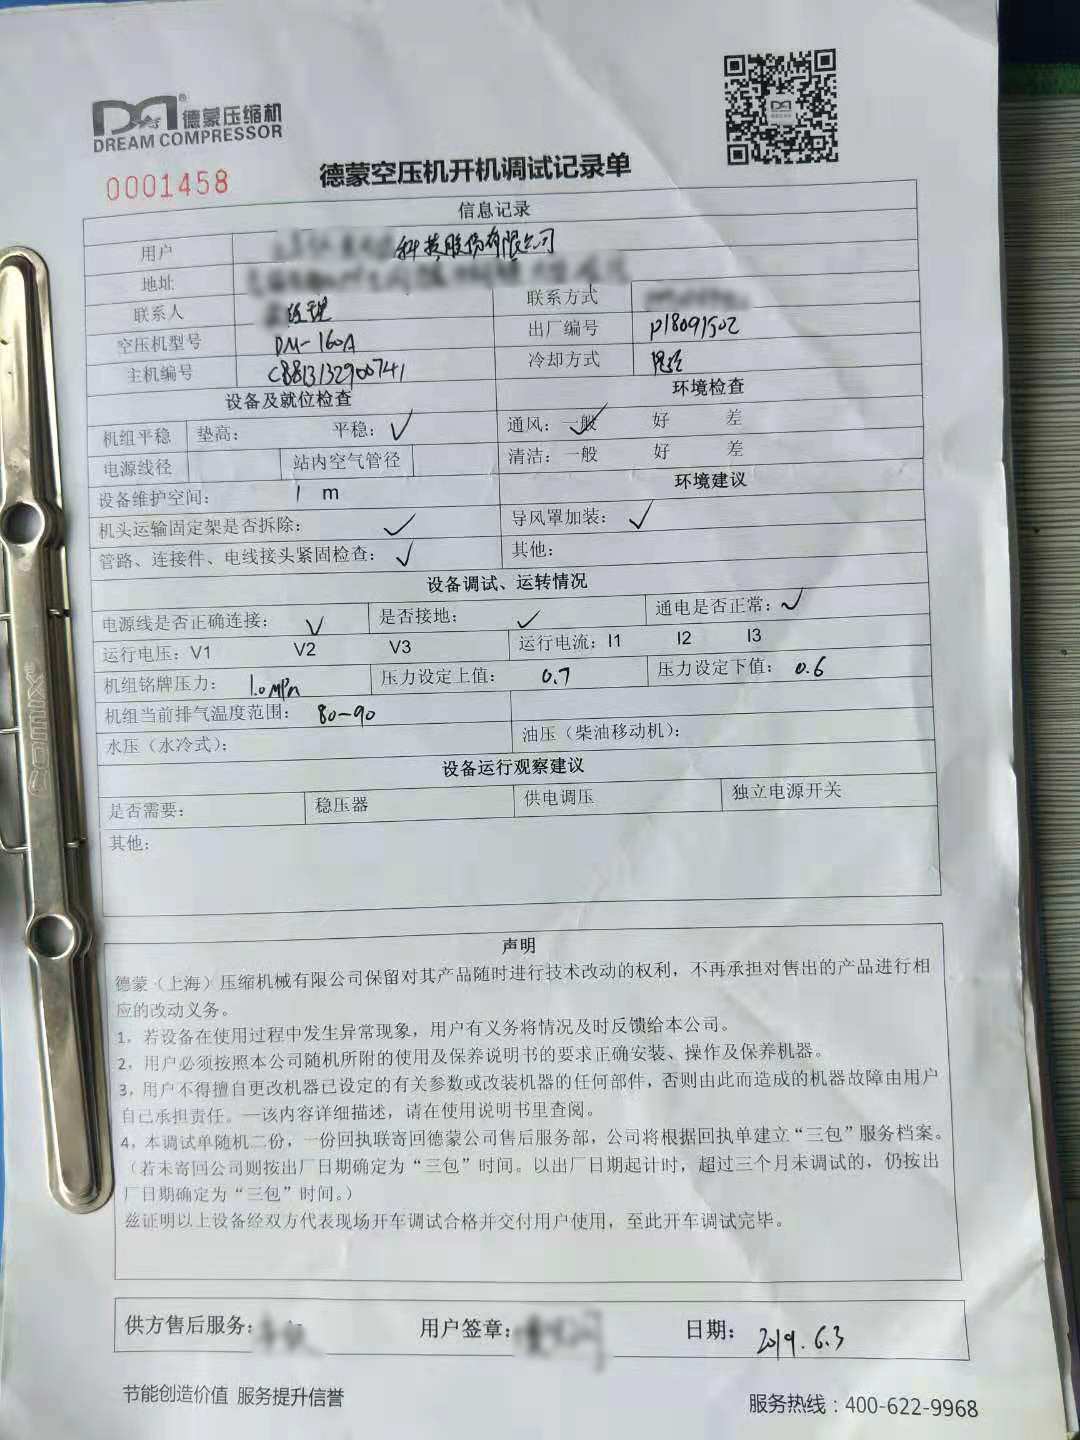 德蒙压缩机
DREAM COMPRESSOR
0001458
德蒙空压机开机调试记录单
信息记录
用户 科技股份有限公司
地址
联系人 经理 联系方式
空压机型号 DM-160A 出厂编号 P18091502
主机编号 CB813132900741 冷却方式
设备及就位检查 环境检查
机组平稳 垫高: 平稳: ✓ 通风: 一般 ✓ 好 差
电源线径 站内空气管径 清洁: 一般 好 差
设备维护空间: 1 m 环境建议
机头运输固定架是否拆除: ✓ 导风罩加装: ✓
管路、连接件、电线接头紧固检查: ✓ 其他:
设备调试、运转情况
电源线是否正确连接: ✓ 是否接地: ✓ 通电是否正常: ✓
运行电压: V1 V2 V3 运行电流: I1 I2 I3
机组铭牌压力: 1.0MPa 压力设定上值: 0.7 压力设定下值: 0.6
机组当前排气温度范围: 80-90
水压（水冷式）: 油压（柴油移动机）:
设备运行观察建议
是否需要: 稳压器 供电调压 独立电源开关
其他:
声明
德蒙（上海）压缩机械有限公司保留对其产品随时进行技术改动的权利，不再承担对售出的产品进行相
应的改动义务。
1，若设备在使用过程中发生异常现象，用户有义务将情况及时反馈给本公司。
2，用户必须按照本公司随机所附的使用及保养说明书的要求正确安装、操作及保养机器。
3，用户不得擅自更改机器已设定的有关参数或改装机器的任何部件，否则由此而造成的机器故障由用户
自己承担责任。—该内容详细描述，请在使用说明书里查阅。
4，本调试单随机二份，一份回执联寄回德蒙公司售后服务部，公司将根据回执单建立“三包”服务档案。
（若未寄回公司则按出厂日期确定为“三包”时间。以出厂日期起计时，超过三个月未调试的，仍按出
厂日期确定为“三包”时间。）
兹证明以上设备经双方代表现场开车调试合格并交付用户使用，至此开车调试完毕。
供方售后服务: 用户签章: 日期: 2019.6.3
节能创造价值 服务提升信誉
服务热线：400-622-9968
comix